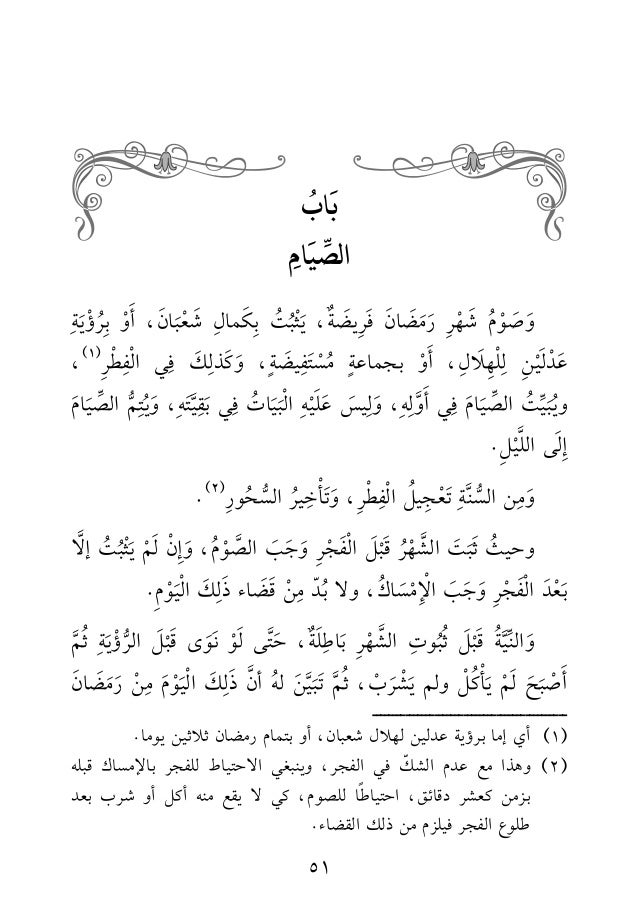 بَابُ
الصِّيَامِ
وَصَوْمُ شَهْرِ رَمَضَانَ فَرِيضَةٌ، يَثْبُتُ بِكَمالِ شَعْبَانَ، أَوْ بِرُؤْيَةِ
عَدْلَيْنِ لِلْهِلَالِ، أَوْ بجماعةٍ مُسْتَفِيضَةٍ، وَكَذلِكَ فِي الْفِطْرِ(١)،
ويُبَيِّتُ الصِّيَامَ فِي أَوَّلِهِ، وَلِيسَ عَلَيْهِ الْبَيَاتُ فِي بَقِيَّتِهِ، وَيُتِمُّ الصِّيَامَ
إِلَى اللَّيْلِ.
وَمِن السُّنَّةِ تَعْجِيلُ الْفِطْرِ، وَتَأْخِيرُ السُّحُورِ(٢).
وحيثُ ثَبَتَ الشَّهْرُ قَبْلَ الْفَجْرِ وَجَبَ الصَّوْمُ، وَإِنْ لَمْ يَثْبُتُ إلَّا
بَعْدَ الْفَجْرِ وَجَبَ الْإِمْسَاكُ، ولا بُدّ مِنْ قَضَاء ذَلِكَ الْيَوْمِ.
وَالنِّيَّةُ قَبْلَ ثُبُوتِ الشَّهْرِ بَاطِلَةٌ، حَتَّى لَوْ نَوَى قَبْلَ الرُّؤْيَةِ ثُمَّ
أَصْبَحَ لَمْ يَأْكُلْ ولم يَشْرَبْ، ثُمَّ تَبَيَّنَ لهُ أنَّ ذَلِكَ الْيَوْمَ مِنْ رَمَضَانَ
(١) أي إما برؤية عدلين لهلال شعبان، أو بتمام رمضان ثلاثين يوما.
(٢) وهذا مع عدم الشكّ في الفجر، وينبغي الاحتياط للفجر بالإمساك قبله
بزمن كعشر دقائق، احتياطًا للصوم، كي لا يقع منه أكل أو شرب بعد
طلوع الفجر فيلزم من ذلك القضاء.
٥١